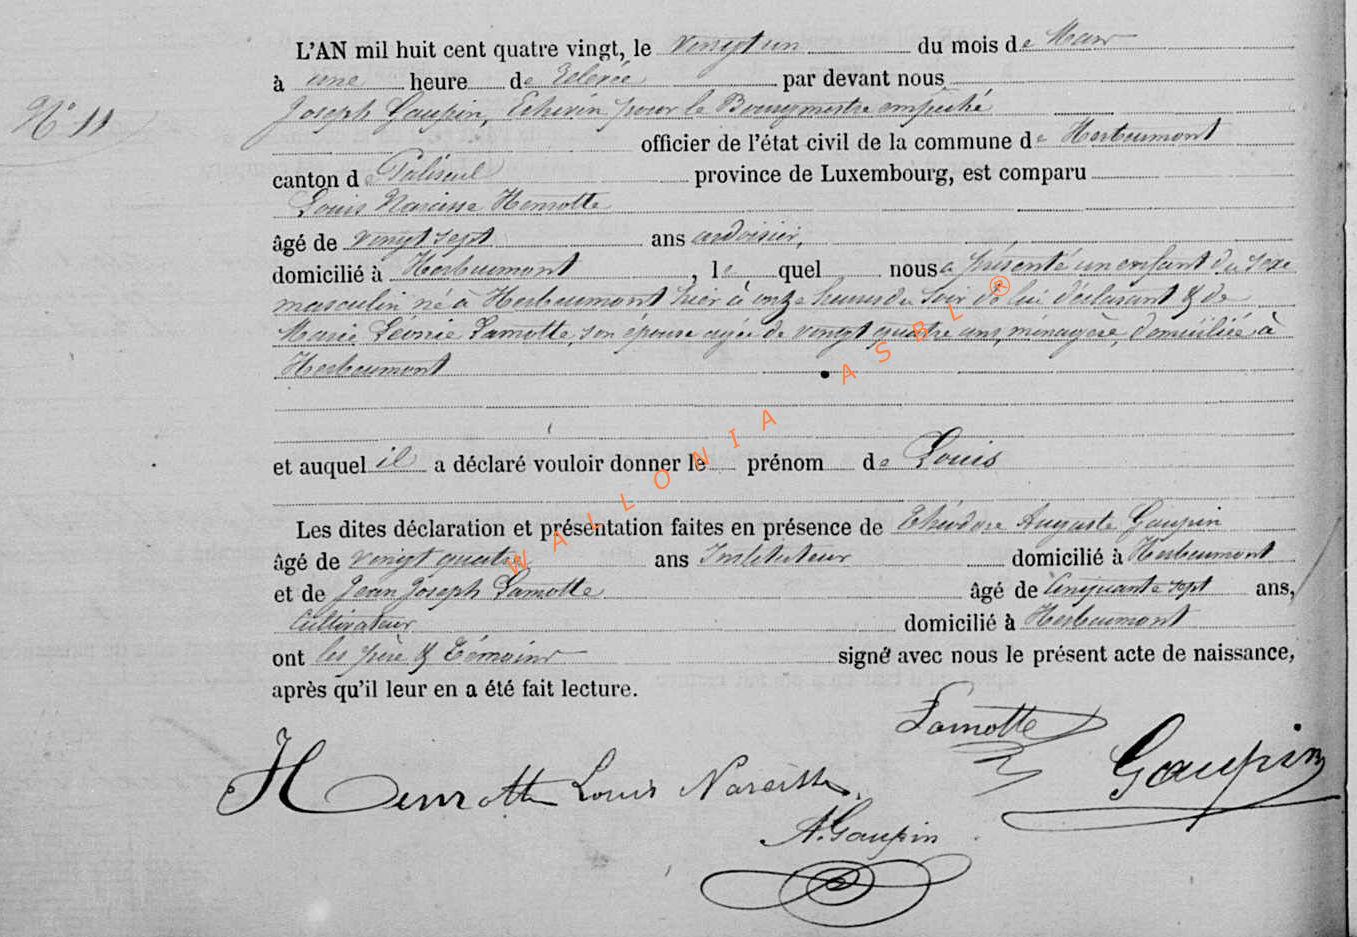 L'AN mil huit cent quatre vingt, le vingt un du mois de Mars
à une heure de relevée par devant nous
Nº 11
Joseph Gaupin, Echevin pour le Bourgmestre empêché
officier de l'état civil de la commune de Herbeumont
canton de Paliseul province de Luxembourg, est comparu
Louis Narcisse Henrotte
âgé de vingt sept ans ardoisier,
domicilié à Herbeumont, le quel nous a présenté un enfant du sexe
masculin né à Herbeumont hier à onze heures du soir de lui déclarant & de
Marie Léonie Lamotte, son épouse agée de vingt quatre ans, ménagère, domiciliée à
Herbeumont
et auquel il a déclaré vouloir donner le prénom de Louis
Les dites déclaration et présentation faites en présence de Théodore Auguste Gaupin
âgé de vingt quatre ans Instituteur domicilié à Herbeumont
et de Jean Joseph Lamotte âgé de Cinquante sept ans,
Cultivateur domicilié à Herbeumont
ont les père & témoins signé avec nous le présent acte de naissance,
après qu'il leur en a été fait lecture.
Lamotte
Gaupin
Henrotte Louis Narcisse.
A. Gaupin
WALLONIA ASBL ®